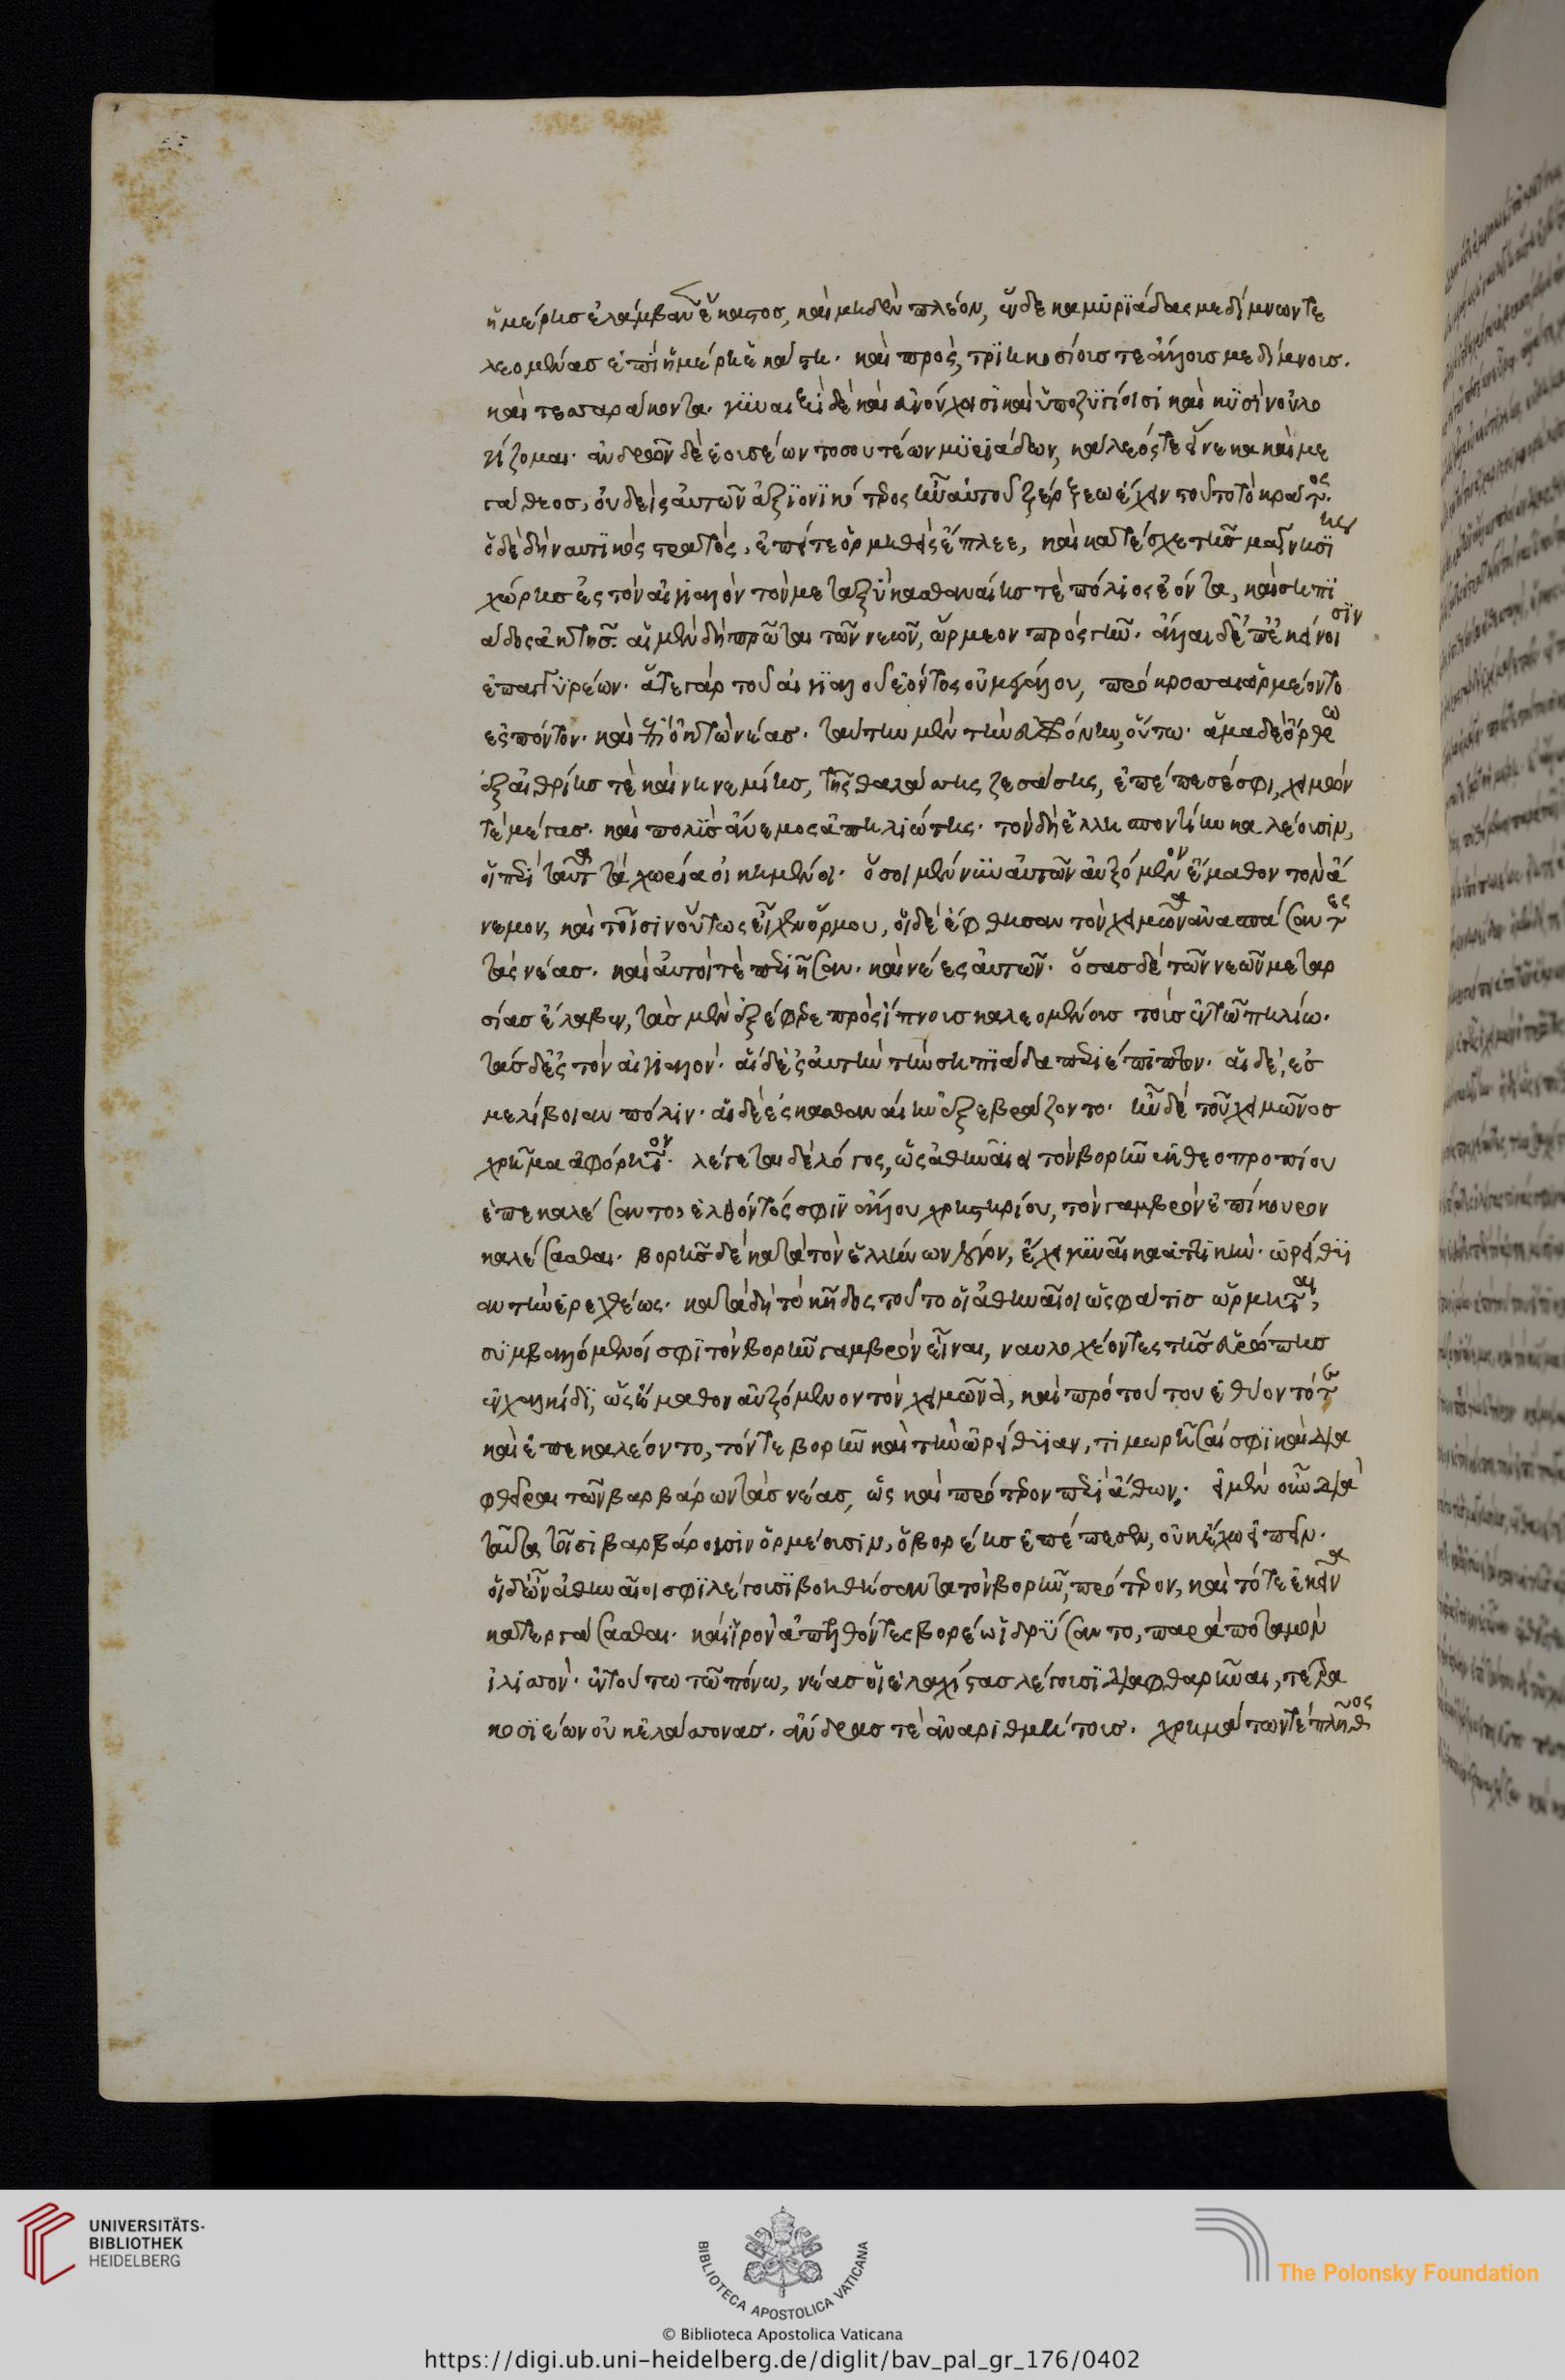 ἡμέρης ἐλάμβανε ἕκαστος, καὶ μηδὲν πλέον, ἕνδεκα μυριάδας μεδίμνων τε
λεομένας ἐπὶ ἡμέρη ἑκάστη. καὶ πρὸς, τριηκοσίοις τε ἄλλοις μεδίμνοις.
καὶ τεσσαράκοντα. γυναιξὶ δὲ καὶ εὐνούχοισι καὶ ὑποζυγίοισι καὶ κυσὶν οὐ λο
γίζομαι. ἀνδρῶν δὲ ἐουσέων τοσουτέων μυριάδων, κάλεός τε εἵνεκα καὶ με
γάθεος, οὐδεὶς αὐτῶν ἀξιονικότερος ἦν αὐτοῦ ξέρξεω ἔχειν τοῦτο τὸ κράτος.
ὁ δὲ δὴ ναυτικὸς στρατὸς, ἐπείτε ὁρμηθεὶς ἔπλεε, καὶ κατέσχε τῆς μαγνησίης
χώρης ἐς τὸν αἰγιαλὸν τὸν μεταξὺ κασθαναίης τὲ πόλιος ἐόντα, καὶ σηπι
άδος ἀκτῆς. αἱ μὲν δὴ πρῶται τῶν νεῶν, ὥρμεον πρὸς γῆν. ἄλλαι δὲ ἐπ' ἐκείνοισιν
ἐπ' ἀγκυρέων. ἅτε γὰρ τοῦ αἰγιαλοῦ ἐόντος οὐ μεγάλου, πρόκροσσαι ὁρμέοντο
ἐς πόντον. καὶ ἐπὶ ὀκτὼ νέας. ταύτην μὲν τὴν εὐφρόνην, οὕτω. ἅμα δὲ ὄρθρω
ἐξ αἰθρίης τὲ καὶ νηνεμίης, τῆς θαλάσσης ζεσάσης, ἐπέπεσέ σφι, χειμών
τὲ μέγας. καὶ πολὺς ἄνεμος ἀπηλιώτης. τὸν δὴ ἑλλησποντίην καλέουσιν,
οἱ περὶ ταῦτα τὰ χωρία οἰκημένοι. ὅσοι μέν νυν αὐτῶν αὐξόμενον ἔμαθον τὸν ἄ
νεμον, καὶ τοῖσιν οὕτως εἶχεν ὅρμου, οἱ δὲ ἔφθησαν τὸν χειμῶνα ἀνασπάσαντες
τὰς νέας. καὶ αὐτοὶ τὲ περιῆσαν. καὶ νέες αὐτῶν. ὅσας δὲ τῶν νεῶν μεταρ
σίας ἔλαβεν, τὰς μὲν ἐξέφερε πρὸς ἴπνους καλεομένους τοὺς ἐν τῶ πηλίω.
τὰς δὲ ἐς τὸν αἰγιαλόν. αἱ δὲ ἐς αὐτὴν τὴν σηπιάδα περιέπιπτον. αἱ δὲ, ἐς
μελίβοιαν πόλιν. αἱ δὲ ἐς κασθαναίην ἐξεβράζοντο. ἦν δὲ τοῦ χειμῶνος
χρῆμα ἀφόρητον. λέγεται δὲ λόγος, ὡς ἀθηναῖοι τὸν βορῆν ἐκ θεοπροπίου
ἐπεκαλέσαντο, ἐλθόντος σφιν ἄλλου χρηστηρίου, τὸν γαμβρὸν ἐπίκουρον
καλέσασθαι. βορῆς δὲ κατὰ τὸν ἑλλήνων λόγον, ἔχει γυναῖκα ἀττικὴν. ὠρείθυι
αν τὴν ἐρεχθέως. κατὰ δὴ τὸ κῆδος τοῦτο οἱ ἀθηναῖοι ὡς φάτις ὥρμηται,
συμβαλλόμενοί σφι τὸν βορῆν γαμβρὸν εἶναι, ναυλοχέοντες τῆς εὐβοίης
ἐν χαλκίδι, ὡς ἔμαθον αὐξόμενον τὸν χειμῶνα, καὶ πρὸ τούτου ἐθύοντό τε
καὶ ἐπεκαλέοντο, τόν τε βορῆν καὶ τὴν ὠρείθυιαν, τιμωρῆσαί σφι καὶ δια
φθεῖραι τῶν βαρβάρων τὰς νέας, ὡς καὶ πρότερον περὶ ἄθων. εἰ μὲν οὖν διὰ
ταῦτα τοῖσι βαρβάροισιν ὁρμέουσιν, ὁ βορέης ἐπέπεσεν, οὐκ ἔχω εἰπεῖν.
οἱ δ' ὦν ἀθηναῖοι σφι λέγουσι βοηθήσαντα τὸν βορῆν, πρότερον, καὶ τότε ἐκεῖνα
κατεργάσασθαι. καὶ ἱρὸν ἀπελθόντες βορέω ἱδρύσαντο, παρὰ ποταμὸν
ἰλισσόν. ἐν τούτω τῶ πόνω, νέας οἳ ἐλαχίστας λέγουσι διαφθαρῆναι, τετρα
κοσιέων οὐκ ἐλάσσονας. ἄνδρας τὲ ἀναριθμήτους. χρημάτων τὲ πλῆθος
UNIVERSITÄTS-
BIBLIOTHEK
HEIDELBERG
BIBLIOTECA APOSTOLICA VATICANA
The Polonsky Foundation
© Biblioteca Apostolica Vaticana
https://digi.ub.uni-heidelberg.de/diglit/bav_pal_gr_176/0402